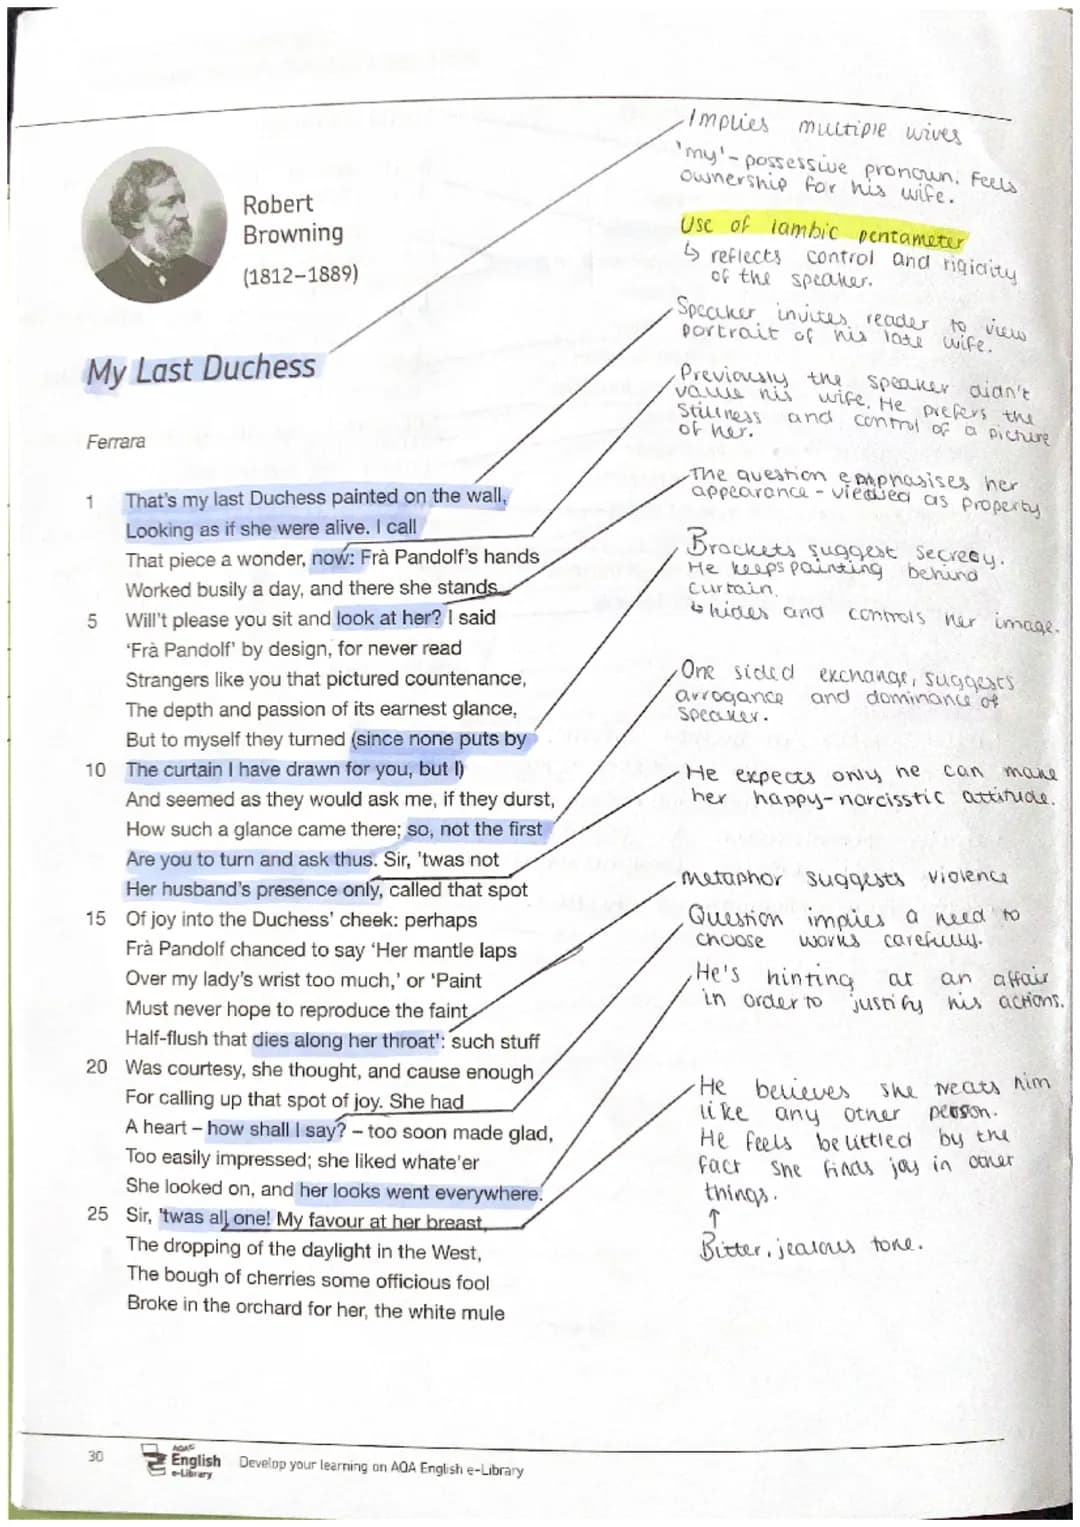 Implies multiple wives
'my' - possessive pronoun. Feels
ownership for his wife.
Use of iambic pentameter
↳ reflects control and rigidity
of the speaker.
Speaker invites reader to view
portrait of his late wife.
Previously the speaker didn't
value his wife. He prefers the
stillness and control of a picture
of her.
The question emphasises her
appearance - viewed as property
Brackets suggest secrecy.
He keeps painting behind
curtain.
↳ hides and controls her image.
One sided exchange, suggests
arrogance and dominance of
speaker.
He expects only he can make
her happy - narcisstic attitude.
metaphor suggests violence
Question implies a need to
choose works carefully.
He's hinting at an affair
in order to justify his actions.
He believes she treats him
like any other person.
He feels belittled by the
fact she finds joy in other
things.
↑
Bitter, jealous tone.
Robert
Browning
(1812–1889)
My Last Duchess
Ferrara
1 That's my last Duchess painted on the wall,
Looking as if she were alive. I call
That piece a wonder, now: Frà Pandolf's hands
Worked busily a day, and there she stands.
5 Will't please you sit and look at her? I said
'Frà Pandolf' by design, for never read
Strangers like you that pictured countenance,
The depth and passion of its earnest glance,
But to myself they turned (since none puts by
10 The curtain I have drawn for you, but I)
And seemed as they would ask me, if they durst,
How such a glance came there; so, not the first
Are you to turn and ask thus. Sir, 'twas not
Her husband's presence only, called that spot
15 Of joy into the Duchess' cheek: perhaps
Frà Pandolf chanced to say 'Her mantle laps
Over my lady's wrist too much,' or 'Paint
Must never hope to reproduce the faint
Half-flush that dies along her throat': such stuff
20 Was courtesy, she thought, and cause enough
For calling up that spot of joy. She had
A heart – how shall I say? – too soon made glad,
Too easily impressed; she liked whate'er
She looked on, and her looks went everywhere.
25 Sir, 'twas all one! My favour at her breast,
The dropping of the daylight in the West,
The bough of cherries some officious fool
Broke in the orchard for her, the white mule
30
AQA
English
e-Library
Develop your learning on AQA English e-Library